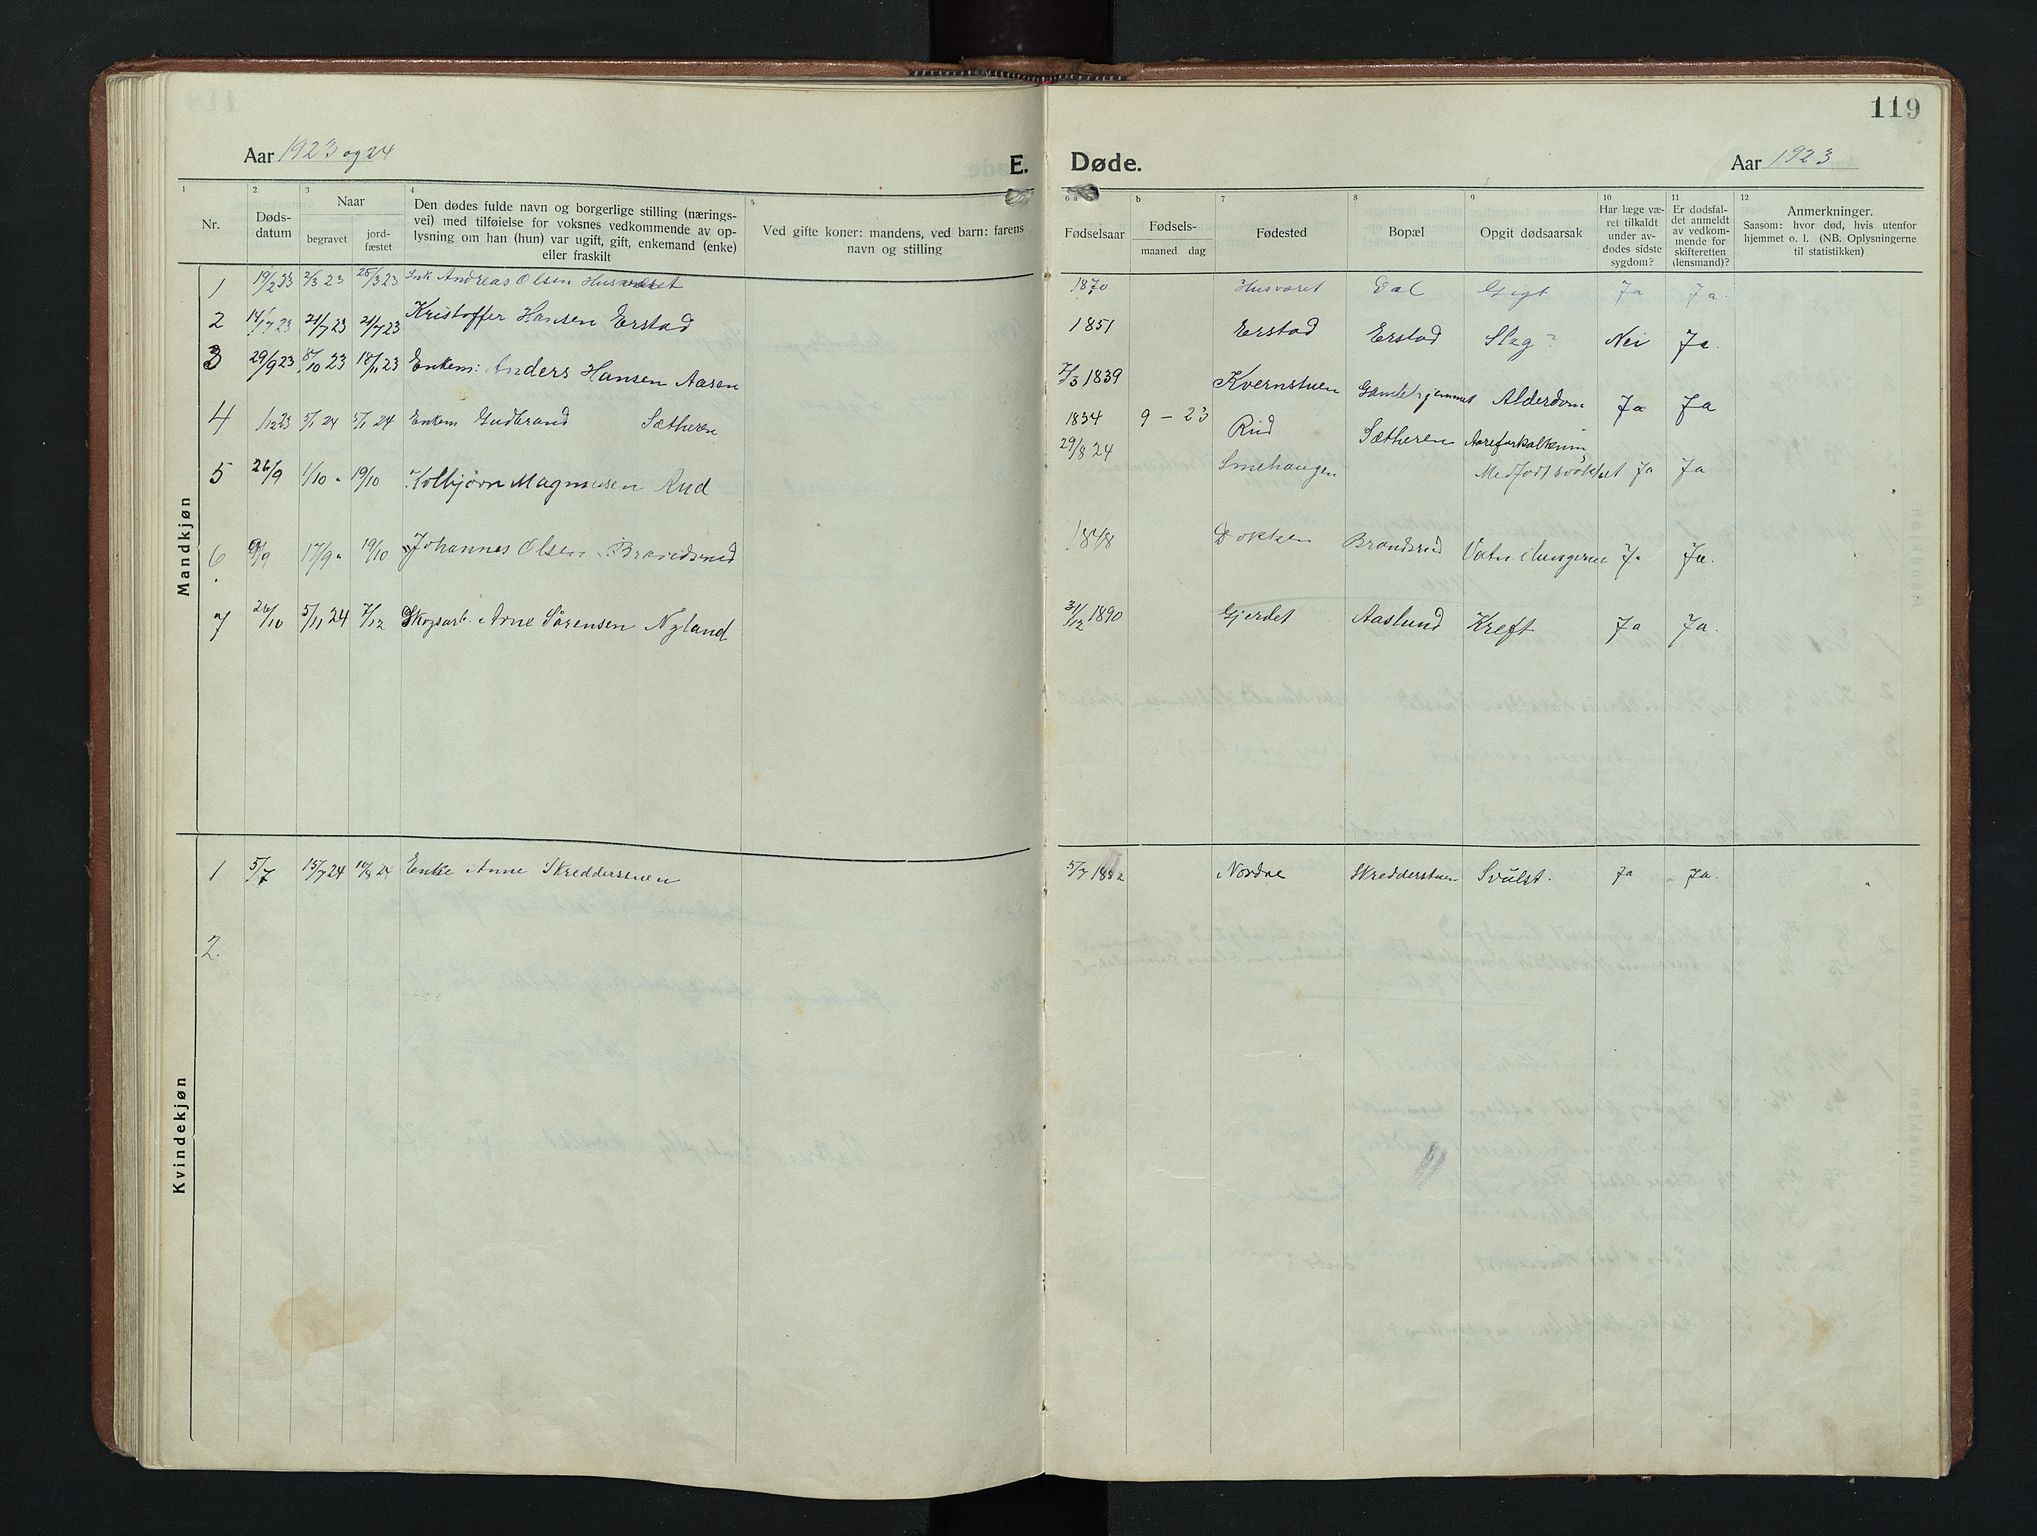 119
Aar 1923 og 24
E. Døde.
Aar 1923
1 2 3 4 5 6 a b 7 8 9 10 11 12
Nr.
Døds-
datum
Naar
begravet
jord-
fæstet
Den dødes fulde navn og borgerlige stilling (nærings-
vei) med tilføielse for voksnes vedkommende av op-
lysning om han (hun) var ugift, gift, enkemand (enke)
eller fraskilt
Ved gifte koner: mandens, ved barn: farens
navn og stilling
Fødselsaar
Fødsels-
maaned dag
Fødested
Bopæl
Opgit dødsaarsak
Har læge væ-
ret tilkaldt
under av-
dødes sidste
sygdom?
Er dødsfal-
det anmeldt
av vedkom-
mende for
skifteretten
(lensmand)?
Anmerkninger.
Saasom: hvor død, hvis utenfor
hjemmet o. l. (NB. Oplysningerne
til statistikken)
Mandkjøn
1 19/2 23 2/3 23 25/3 23 Andreas Olsen Husværet 1870 Husværet Dal Gigt Ja Ja.
2 14/7 23 21/7 23 21/7 23 Kristoffer Hansen Erstad 1851 Erstad Erstad Slag? Nei Ja.
3 29/9 23 8/10 23 18/11 23 Enkem: Anders Hansen Aasen 7/3 1839 Kvernstuen Gamlehjemmet Alderdom Ja Ja
4 1/12 23 5/1 24 5/1 24 Enkem Gudbrand Sætheren 1834 9 - 23 Rud Sætheren Aareforkalkning
5 26/9 1/10 19/10 Kolbjørn Magnussen Rud 29/8 24 Smehaugen Medfødt svakhet Ja Ja
6 9/9 17/9 19/10 Johannes Olsen Brandsrud 1848 Dokken Brandsrud Vatn i lungerne Ja Ja.
7 26/10 5/11 24 7/12 Skogsarb. Arne Sørensen Nyland 31/12 1890 Gjerdet Aaslund Kreft Ja Ja.
Kvindekjøn
1 5/7 15/7 24 24 Enke Anne Skredderstuen 5/7 Nordre Skredderstuen Svulst. Ja Ja.
2.